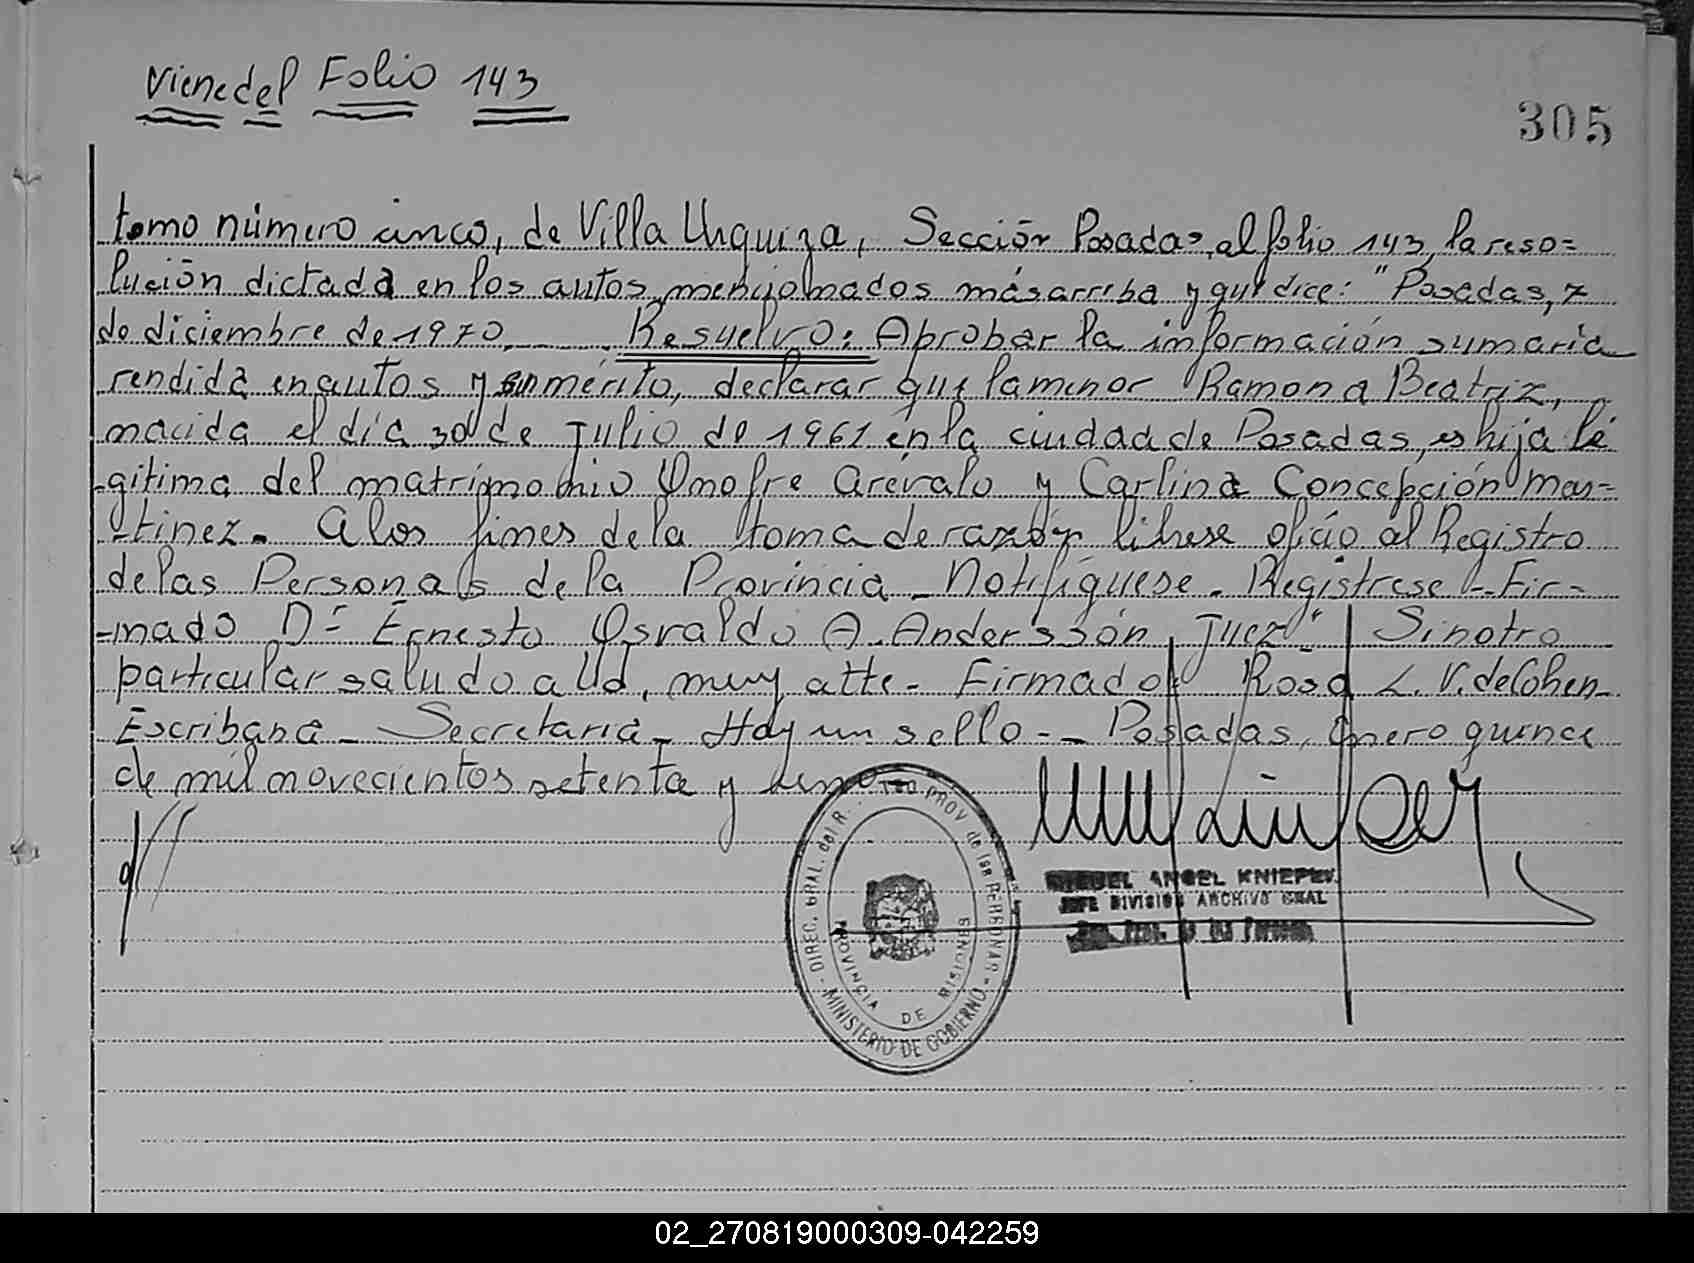 Viene del Folio 143
305
tomo número cinco, de Villa Urquiza, Sección Posadas, al folio 143, la reso=
lución dictada en los autos mencionados más arriba y que dice: "Posadas, 7
de diciembre de 1970. Resuelvo: Aprobar la información sumaria
rendida en autos y en mérito, declarar que la menor Ramona Beatriz,
nacida el día 30 de Julio de 1961 en la ciudad de Posadas, es hija le
-gitima del matrimonio Onofre Arévalo y Carlina Concepción Mar=
-tinez. A los fines de la toma de razón librese oficio al Registro
de las Personas de la Provincia - Notifíquese. Registrese - Fir-
-mado Dr Ernesto Osvaldo A. Andersson Juez" Sin otro
particular saludo a Ud. muy atte - Firmado Rosa L. V. de Cohen
Escribana - Secretaria - Hay un sello - Posadas, Enero quince
de mil novecientos setenta y uno
DIREC. GRAL. del R. PROV de las PERSONAS - MINISTERIO DE GOBIERNO -
PROVINCIA DE MISIONES
MIGUEL ANGEL KNIEPEV.
JEFE DIVISION ARCHIVO GRAL
02_270819000309-042259